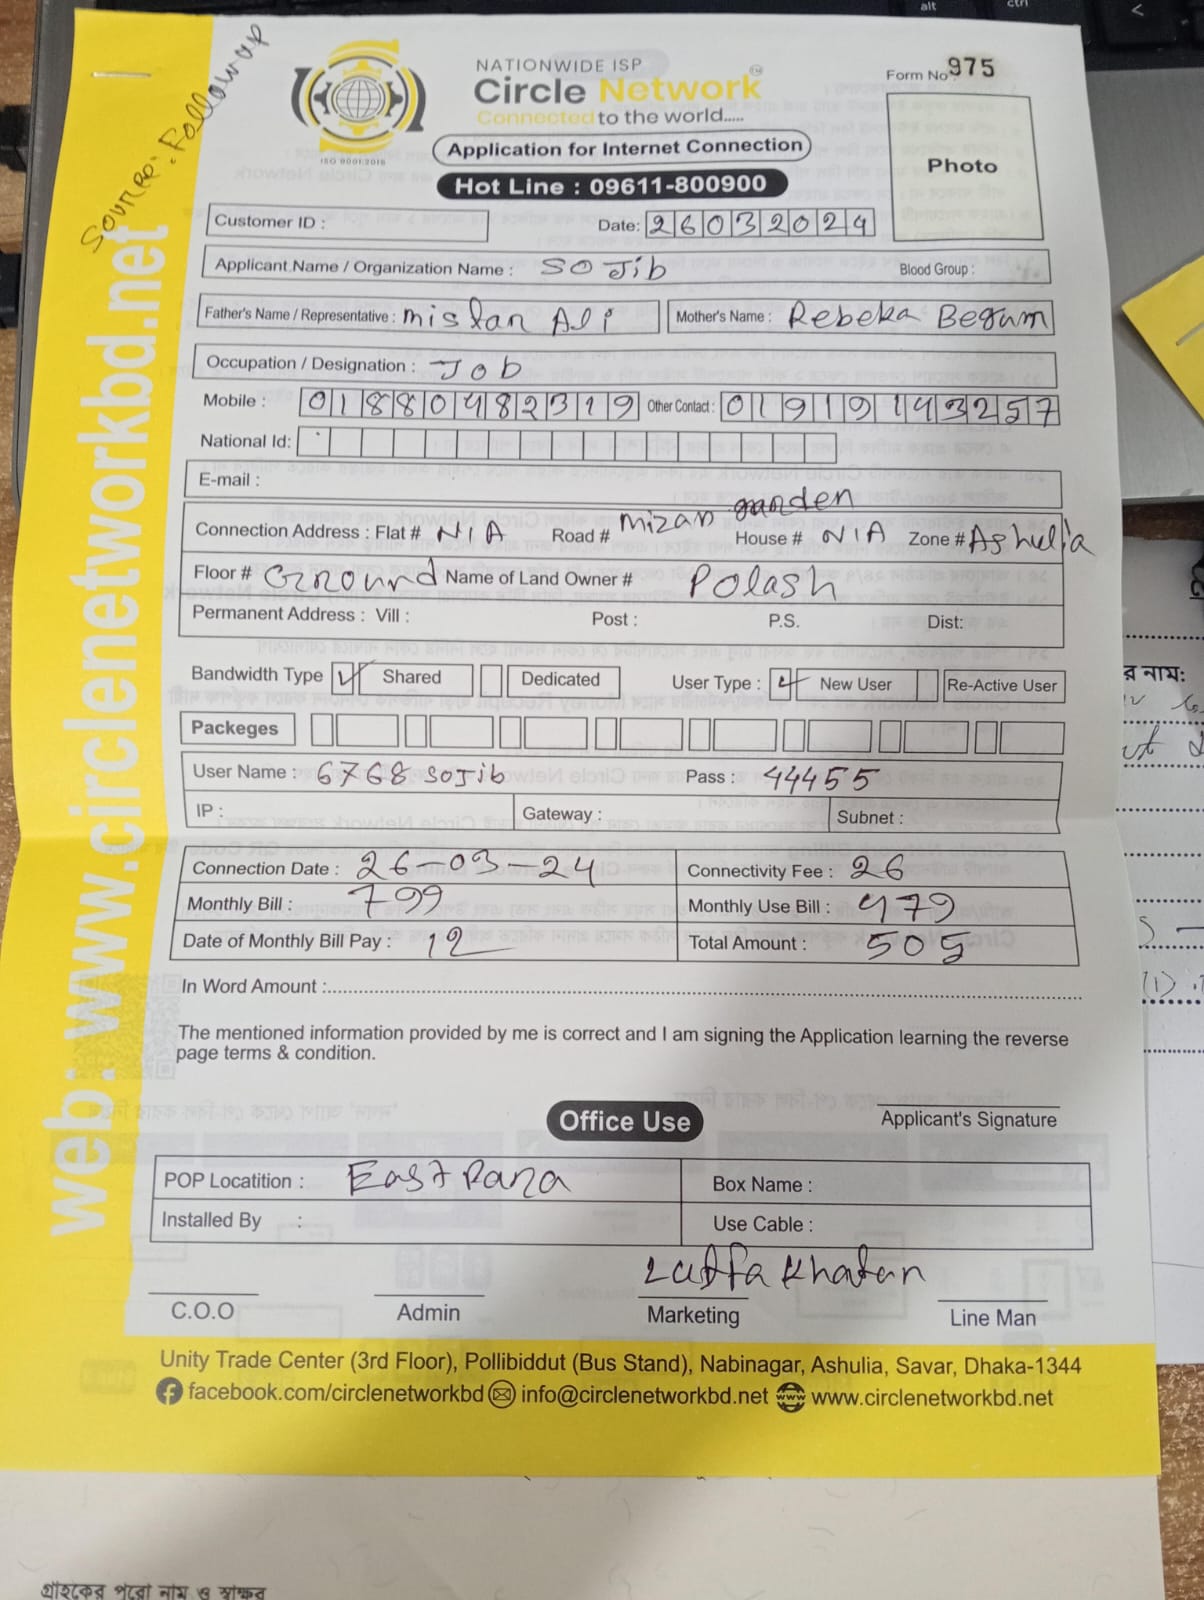 Source: Followap
NATIONWIDE ISP
Circle Network
Connected to the world.....
ISO 9001:2015
Form No 975
Application for Internet Connection
Photo
Hot Line : 09611-800900
Customer ID :
Date: 26032024
Applicant Name / Organization Name : SOJib
Blood Group :
Father's Name / Representative : mistan Ali
Mother's Name : Rebeka Begum
Occupation / Designation : Job
Mobile : 01880482319 Other Contact : 01919143257
National Id:
E-mail :
Connection Address : Flat # N/A Road # mizan garden House # N/A Zone # Ashulia
Floor # Ground Name of Land Owner # Polash
Permanent Address : Vill : Post : P.S. Dist:
Bandwidth Type Shared Dedicated User Type : New User Re-Active User
Packeges
User Name : 6768sojib Pass : 44455
IP : Gateway : Subnet :
Connection Date : 26-03-24 Connectivity Fee : 26
Monthly Bill : 799 Monthly Use Bill : 479
Date of Monthly Bill Pay : 12 Total Amount : 505
In Word Amount :
The mentioned information provided by me is correct and I am signing the Application learning the reverse
page terms & condition.
Office Use
Applicant's Signature
POP Locatition : East Para Box Name :
Installed By : Use Cable :
Lutfa Khatun
C.O.O Admin Marketing Line Man
Unity Trade Center (3rd Floor), Pollibiddut (Bus Stand), Nabinagar, Ashulia, Savar, Dhaka-1344
facebook.com/circlenetworkbd info@circlenetworkbd.net www.circlenetworkbd.net
web: www.circlenetworkbd.net
র নাম:
গ্রাহকের পুরো নাম ও স্বাক্ষর
alt
ctrl